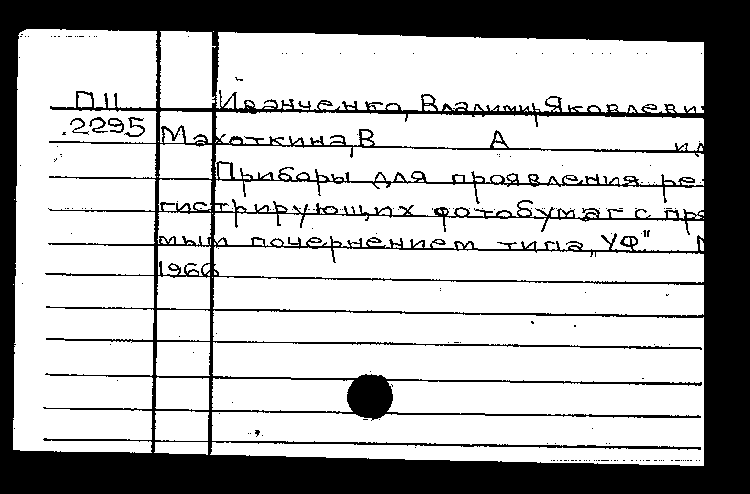 П.11 Иванченко, Владимир Яковлевич
.2295 Махоткина, В А и д
Приборы для проявления ре-
гистрирующих фотобумаг с пря
мым почернением типа „УФ" М
1966